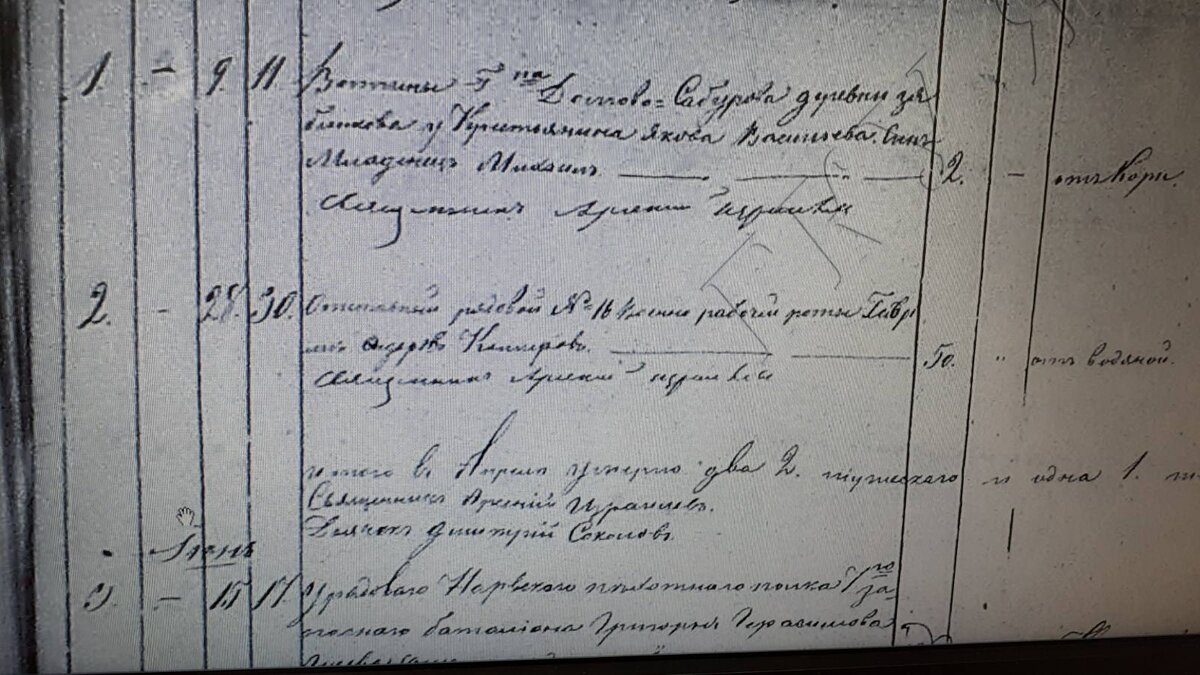 1. — 9. 11. Вотчины Г на Долгово-Сабурова деревни
у Крестьянина Якова Васильева Сынъ
Младенец Михаил 2. — отъ Кори.
Священникъ Арсений Израилевъ
2. — 28. 30. Отставный рядовой № 16 Военно рабочей роты Гавр
50. " отъ водяной.
Священникъ Арсений Израилевъ
итого в Апреле умерло два 2. мужескаго и одна 1.
Священникъ Арсений Израилевъ.
Дьячокъ Дмитрий Соколовъ.
Іюнь
3. — 15 17. У рядоваго Нарвскаго пехотнаго полка за
паснаго баталиона Григорья Герасимова